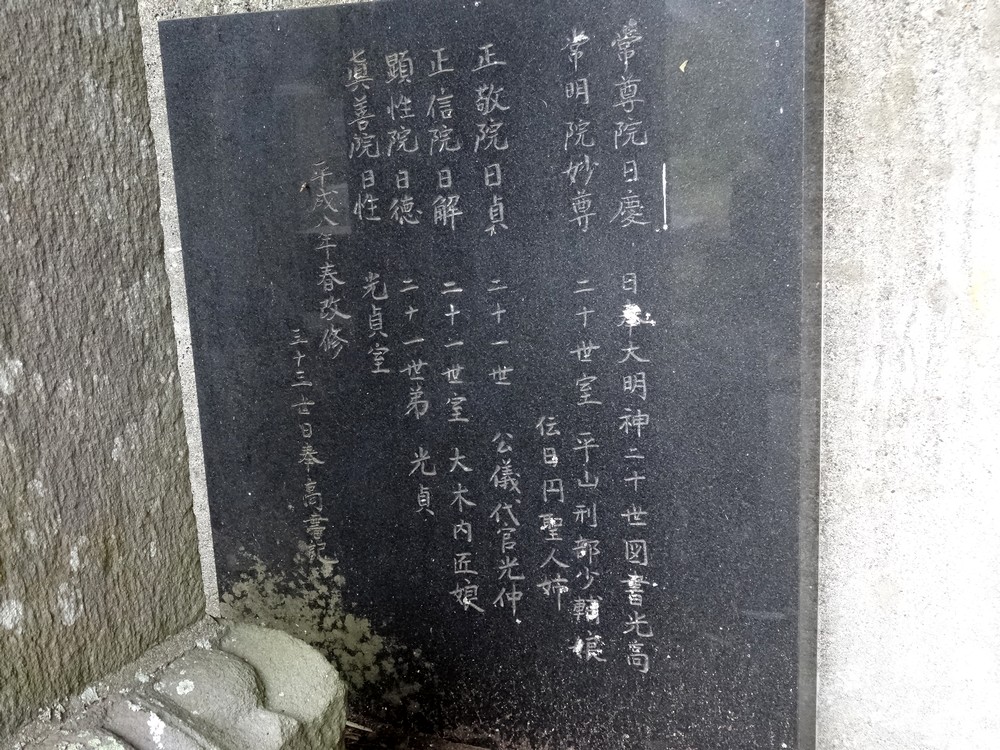 常尊院日慶 日奉大明神二十世図書光高
常明院妙尊 二十世室 平山刑部少輔娘
伝日円聖人姉
正敬院日貞 二十一世 公儀代官光仲
正信院日解 二十一世室 大木内匠娘
顕性院日徳 二十一世弟 光貞
眞善院日性 光貞室
平成八年春改修
三十三世日奉高書記